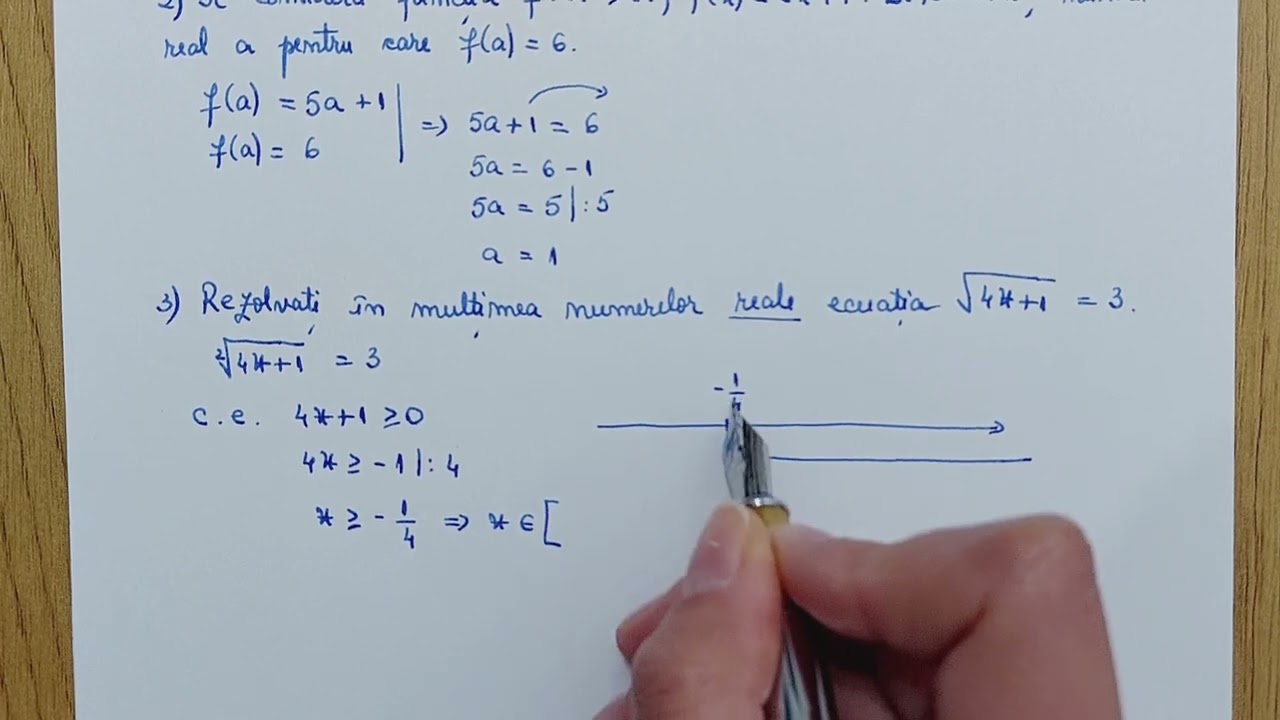 real a pentru care f(a) = 6.
f(a) = 5a + 1 | => 5a + 1 = 6
f(a) = 6
5a = 6 - 1
5a = 5 | : 5
a = 1
3) Rezolvați în mulțimea numerelor reale ecuația √(4x+1) = 3.
²√(4x+1) = 3
c.e. 4x+1 ≥ 0
-1/4
4x ≥ -1 | : 4
x ≥ -1/4 => x ∈ [